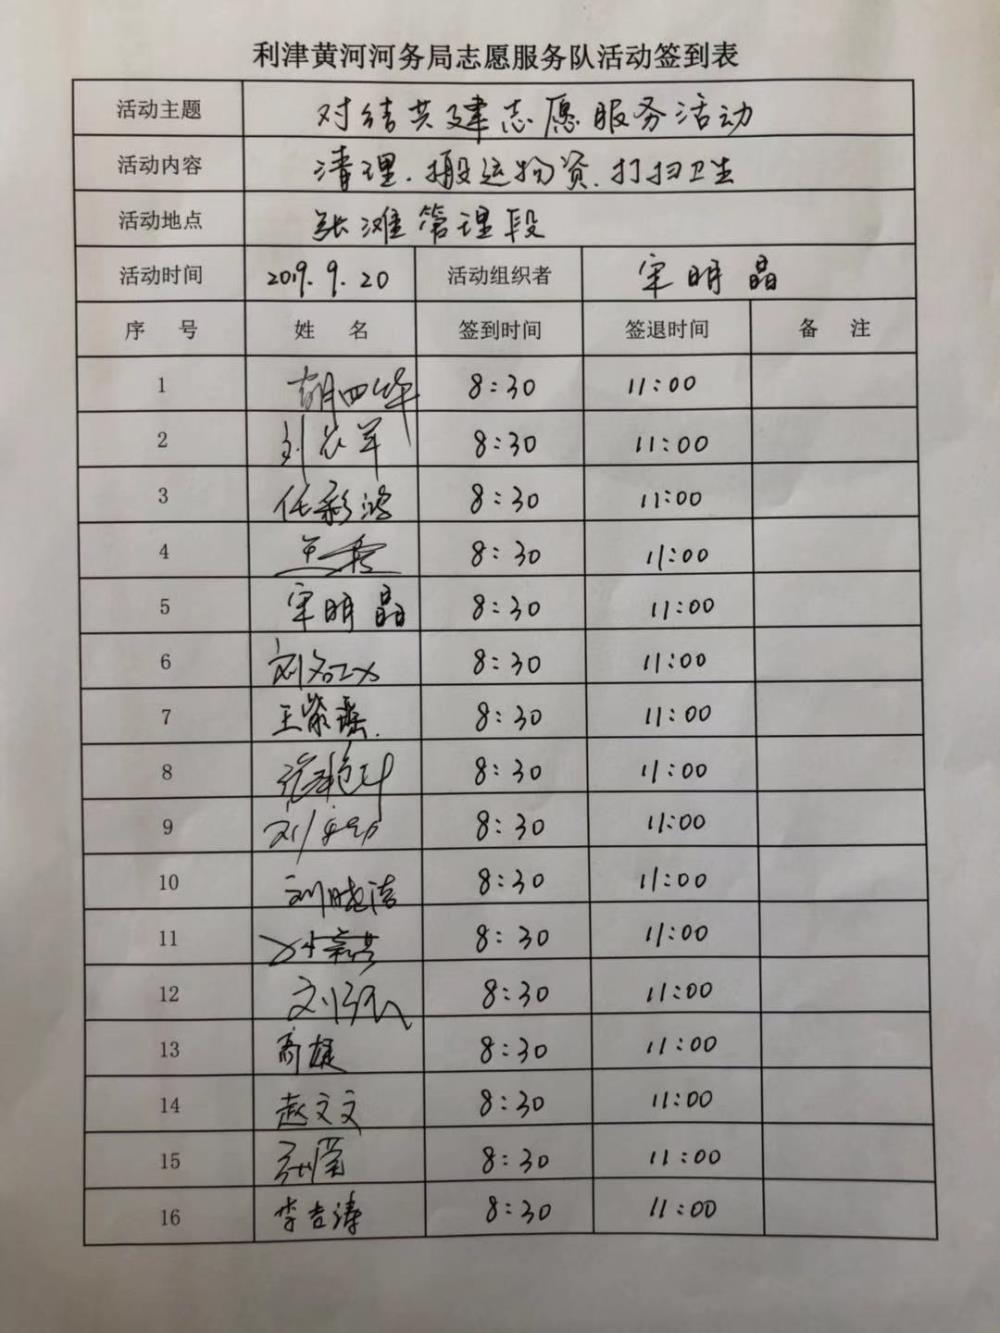 利津黄河河务局志愿服务队活动签到表
活动主题 对结共建志愿服务活动
活动内容 清理.搬运物资.打扫卫生
活动地点 张滩管理段
活动时间 2019.9.20 活动组织者 宋明晶
序 号 姓 名 签到时间 签退时间 备 注
1 胡四华 8:30 11:00
2 8:30 11:00
3 任彩鸿 8:30 11:00
4 8:30 11:00
5 宋明晶 8:30 11:00
6 8:30 11:00
7 王紫瑶. 8:30 11:00
8 8:30 11:00
9 8:30 11:00
10 刘晓洁 8:30 11:00
11 8:30 11:00
12 8:30 11:00
13 商捷 8:30 11:00
14 赵文文 8:30 11:00
15 8:30 11:00
16 李吉涛 8:30 11:00